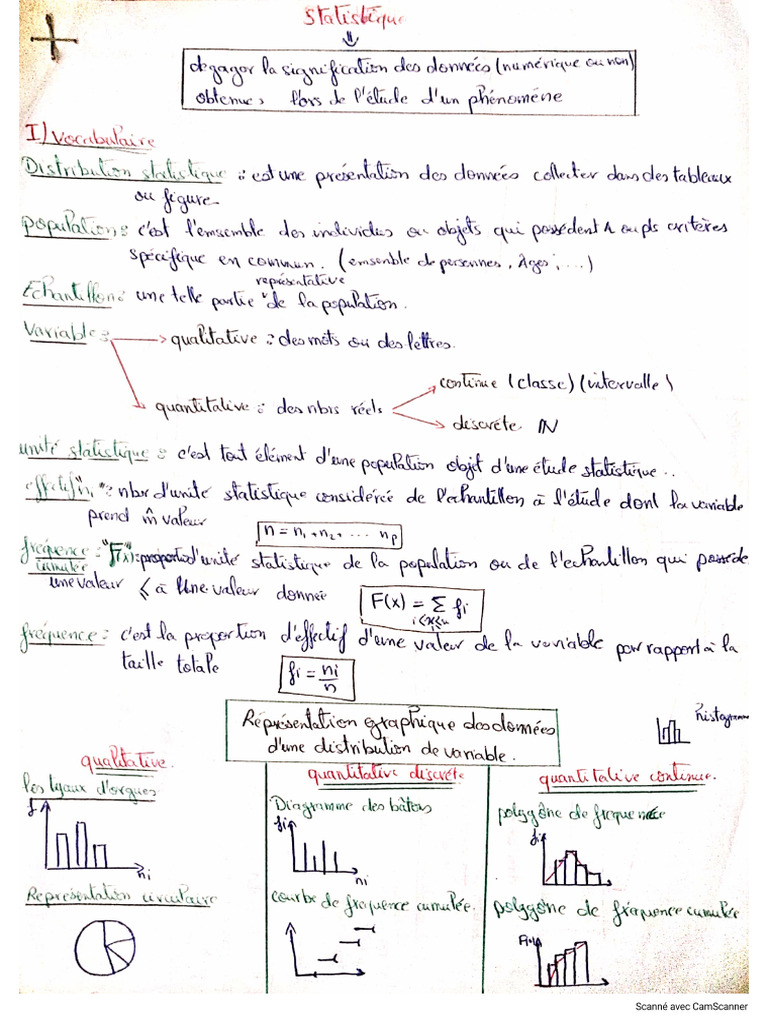 Statistique
⇓
degager la signification des données (numérique ou non)
obtenues lors de l'étude d'un phénomène
I) Vocabulaire
Distribution statistique : est une présentation des données collecter dans des tableaux
ou figure
population : c'est l'ensemble des individus ou objets qui possèdent 1 ou pls critères
spécifique en commun. (ensemble de personnes, Ages, ....)
représentative
Echantillon : une telle partie de la population.
Variable : → qualitative : des mots ou des lettres.
→ quantitative : des nbrs réels
continue (classe) (intervalle)
discrète IN
unité statistique : c'est tout élément d'une population objet d'une étude statistique..
effectif "ni" : nbr d'unité statistique considérée de l'échantillon à l'étude dont la variable
prend m̂ valeur
n = n1 + n2 + ... np
fréquence cumulée : "F(x)" : proportion d'unité statistique de la population ou de l'echantillon qui possède
une valeur ⩽ à une valeur donnée
F(x) = Σ fi
fréquence : c'est la proportion d'effectif d'une valeur de la variable par rapport à la
taille totale
fi = ni/n
Représentation graphique des données
d'une distribution de variable.
histogramme
qualitative.
les tyaux d'orgues
f
ni
Représentation circulaire
quantitative discrète
Diagramme des bâtons
fi
ni
courbe de frequence cumulée.
quantitative continue.
polygône de frequence
fi
polygône de fréquence cumulée
F(x)
Scanné avec CamScanner